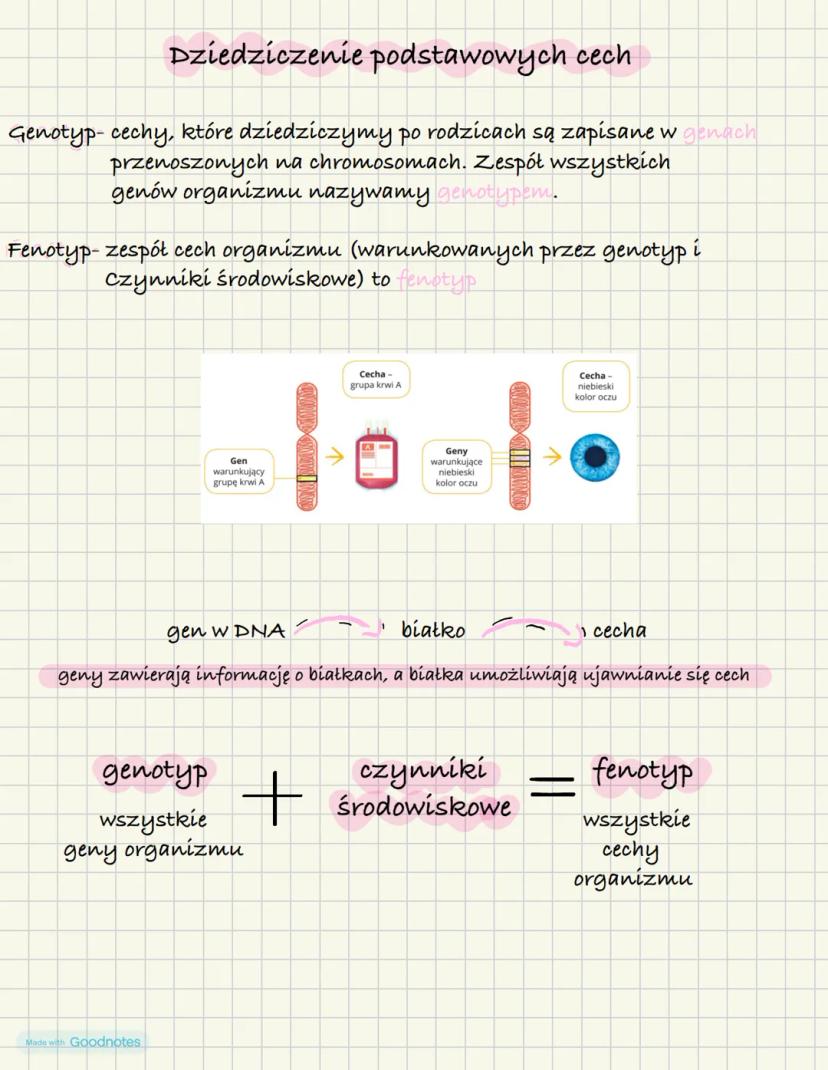 Dziedziczenie podstawowych cech
Genotyp- cechy, które dziedziczymy po rodzicach są zapisane w genach
przenoszonych na chromosomach. Zespół wszystkich
genów organizmu nazywamy genotypem.
Fenotyp- zespół cech organizmu (warunkowanych przez genotyp i
Czynniki środowiskowe) to fenotyp
Cecha –
grupa krwi A
Gen
warunkujący
grupę krwi A
A
Cecha –
niebieski
kolor oczu
Geny
warunkujące
niebieski
kolor oczu
gen w DNA białko cecha
geny zawierają informację o białkach, a białka umożliwiają ujawnianie się cech
genotyp + czynniki = fenotyp
środowiskowe
wszystkie
geny organizmu
wszystkie
cechy
organizmu
Made with Goodnotes